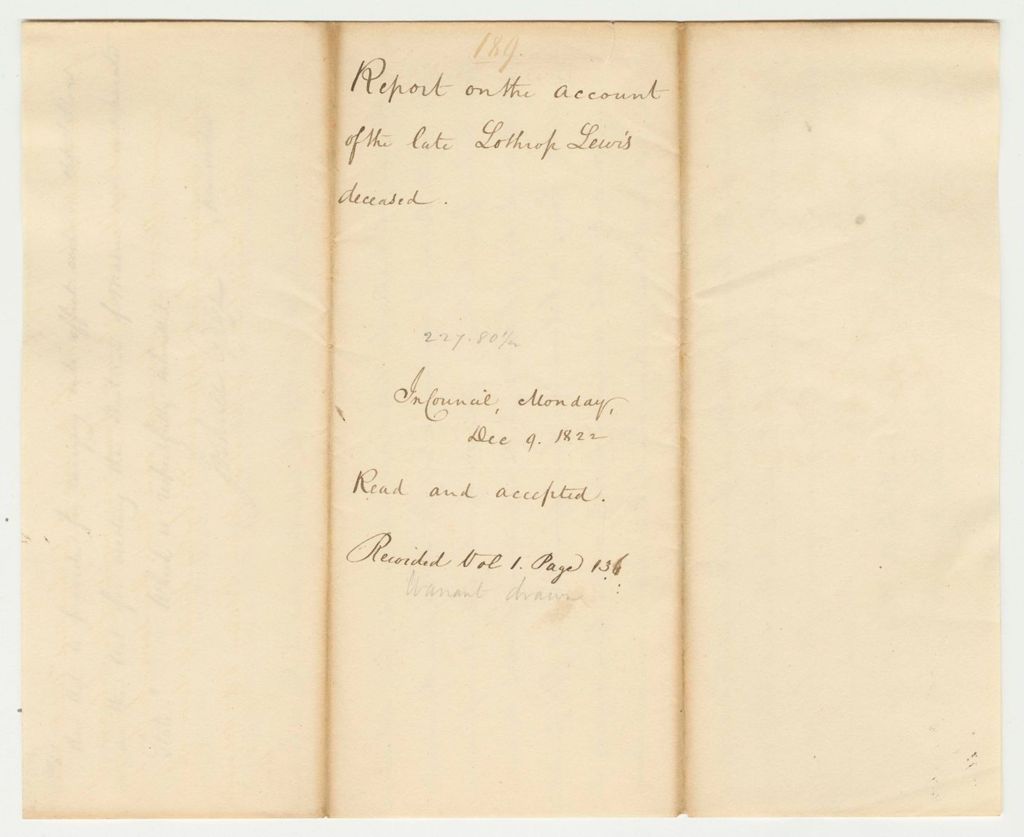 189.
Report on the account
of the late Lothrop Lewis
deceased.
227.80½
In Council, Monday,
Dec 9. 1822
Read and accepted.
Recorded Vol 1. Page 136
Warrant drawn